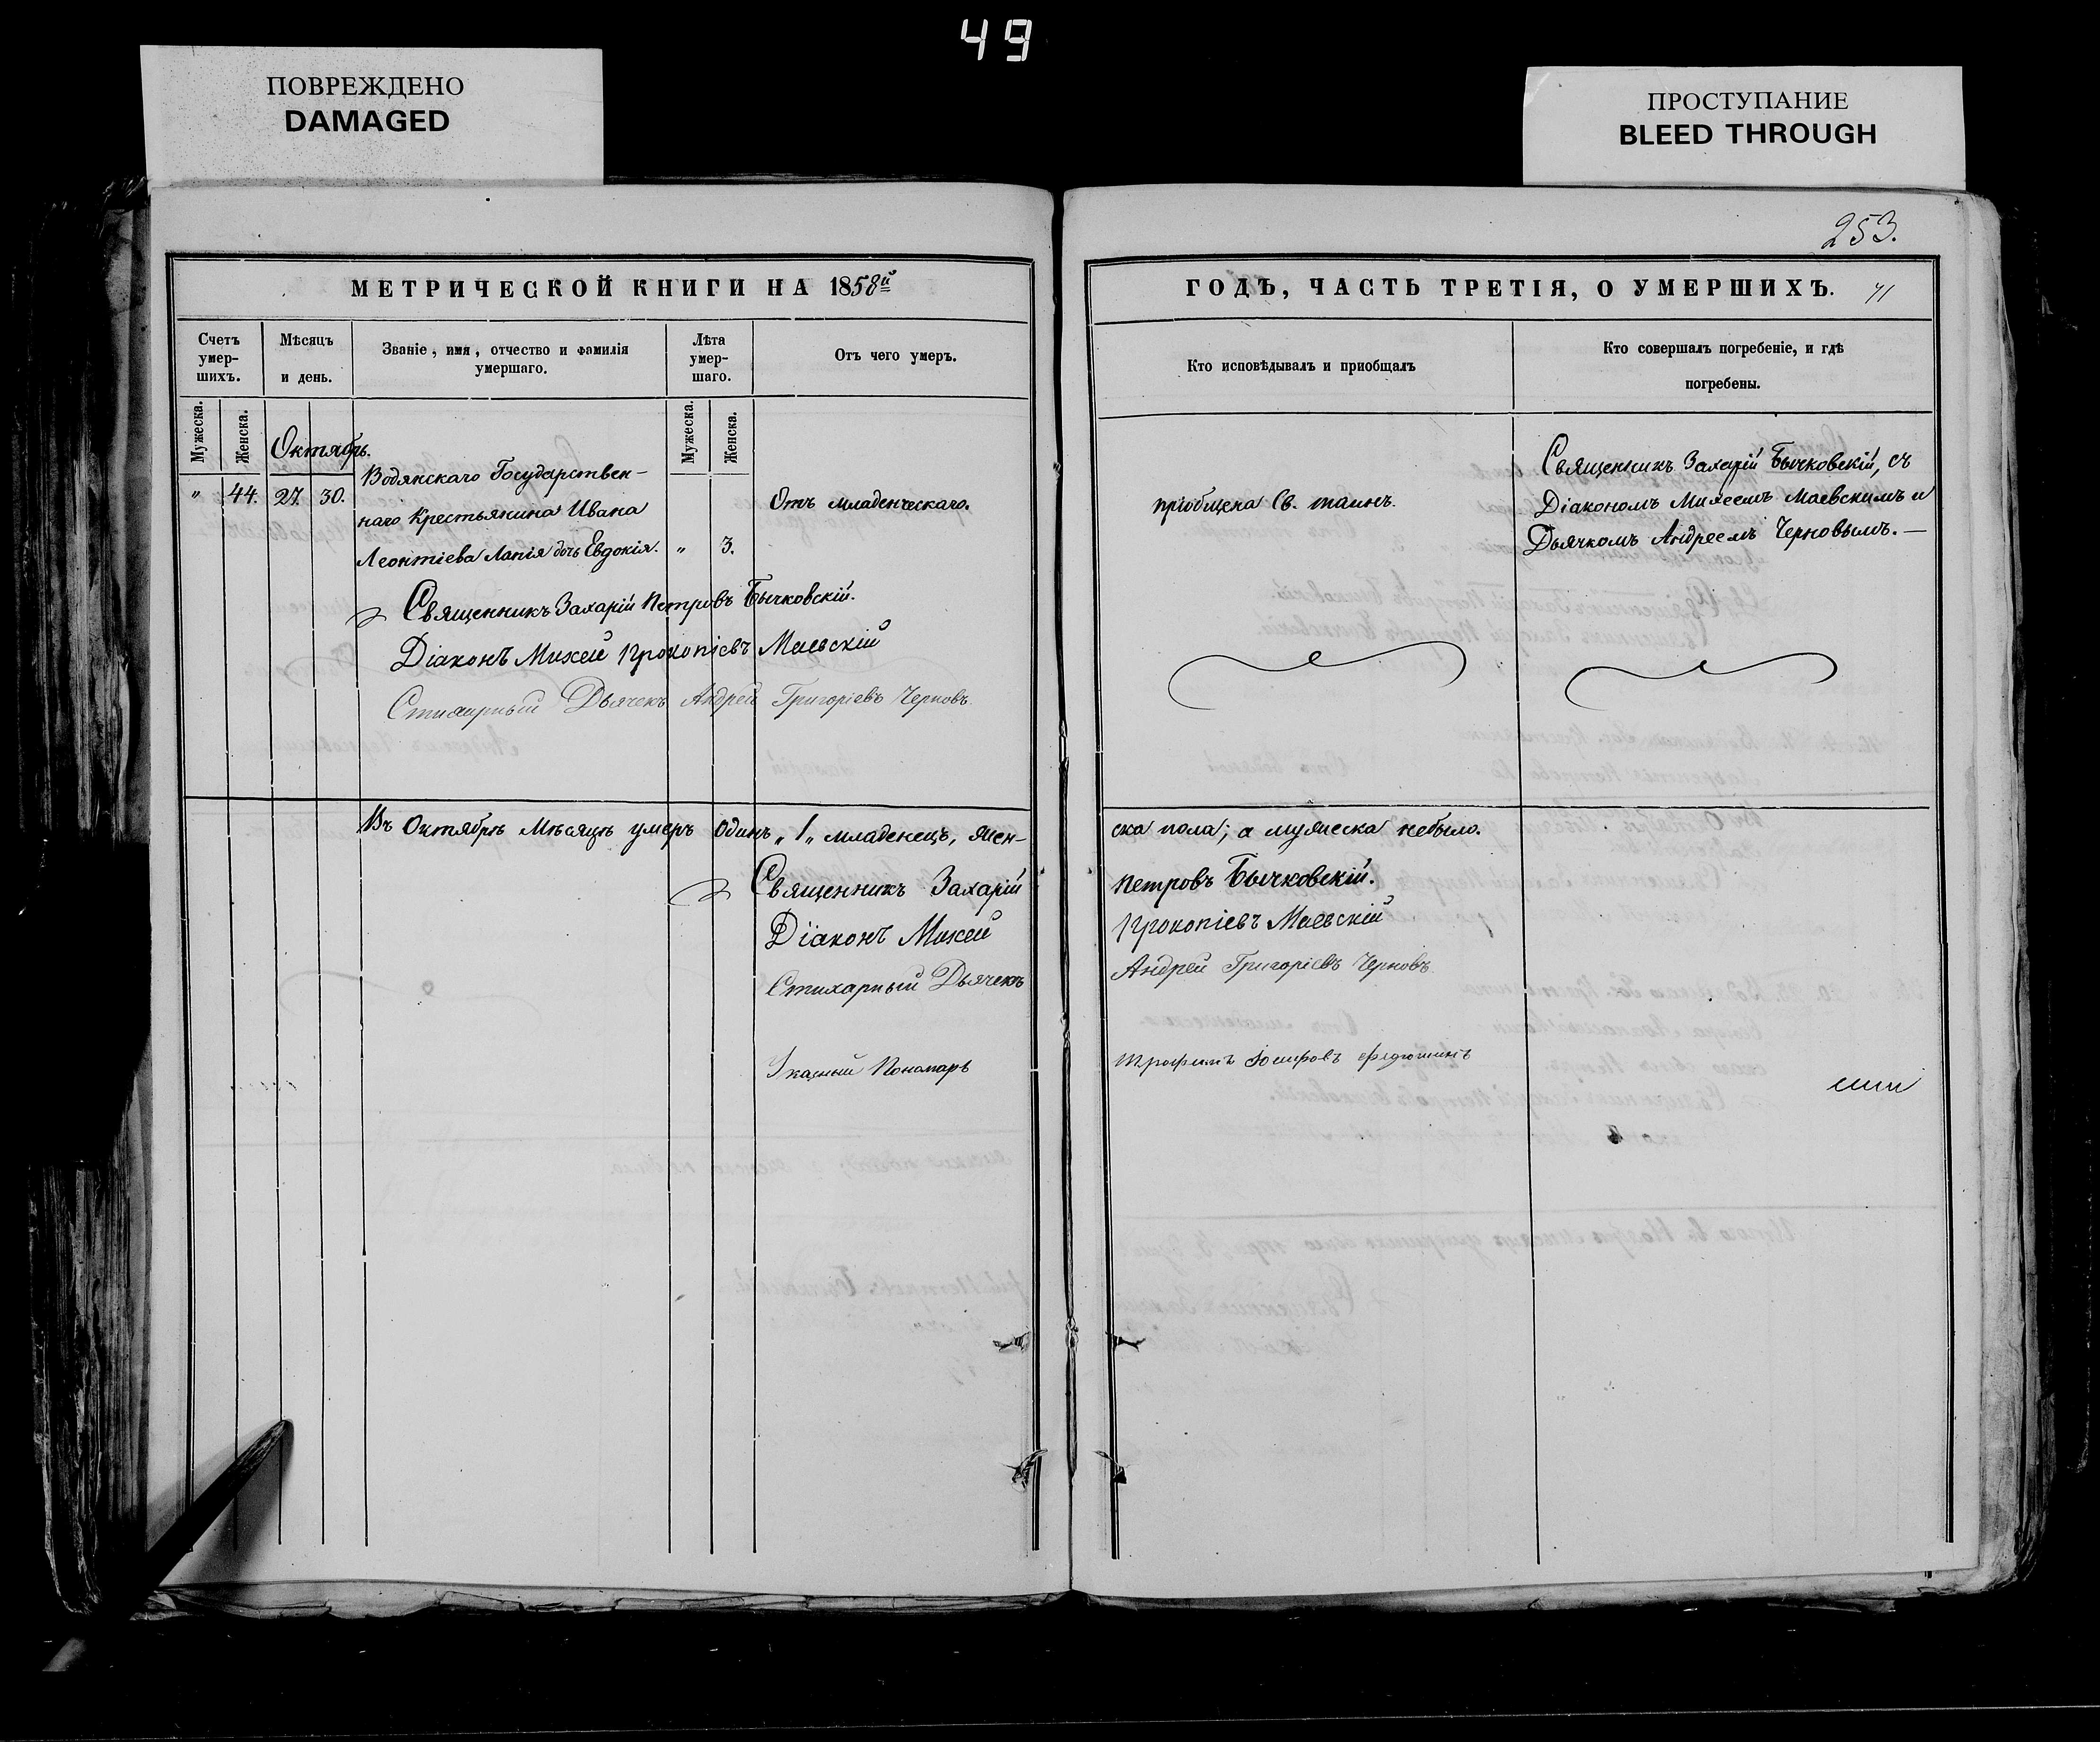 49
ПОВРЕЖДЕНО
DAMAGED
ПРОСТУПАНИЕ
BLEED THROUGH
253.
МЕТРИЧЕСКОЙ КНИГИ НА 1858й
Счетъ умер-шихъ.
Мѣсяцъ и день.
Званіе, имя, отчество и фамилія умершаго.
Лѣта умер-шаго.
Отъ чего умеръ.
Мужеска.
Женска.
Мужеска.
Женска.
Октябрь.
" 44. 27. 30.
Водянскаго Государствен-
наго Крестьянина Ивана
Леонтіева Лапія дочь Евдокія. " 3.
Отъ младенческаго.
Священникъ Захарій Петровъ Бычковскій.
Діаконъ Михей Прокопіевъ Маевскій
Стихарный Дьячекъ Андрей Григоріевъ Черновъ
Въ Октябрѣ Мѣсяцѣ умеръ одинъ „1„ младенецъ, жен-
Священникъ Захарій
Діаконъ Михей
Стихарный Дьячекъ
Указный Пономарь
ГОДЪ, ЧАСТЬ ТРЕТІЯ, О УМЕРШИХЪ. 71
Кто исповѣдывалъ и пріобщалъ
Кто совершалъ погребеніе, и гдѣ погребены.
пріобщена Св. таинъ.
Священникъ Захарій Бычковскій, съ
Діакономъ Михеемъ Маевскимъ и
Дьячкомъ Андреемъ Черновымъ. —
ска пола; а мужеска небыло.
Петровъ Бычковскій.
Прокопіевъ Маевскій
Андрей Григоріевъ Черновъ
Трофимъ